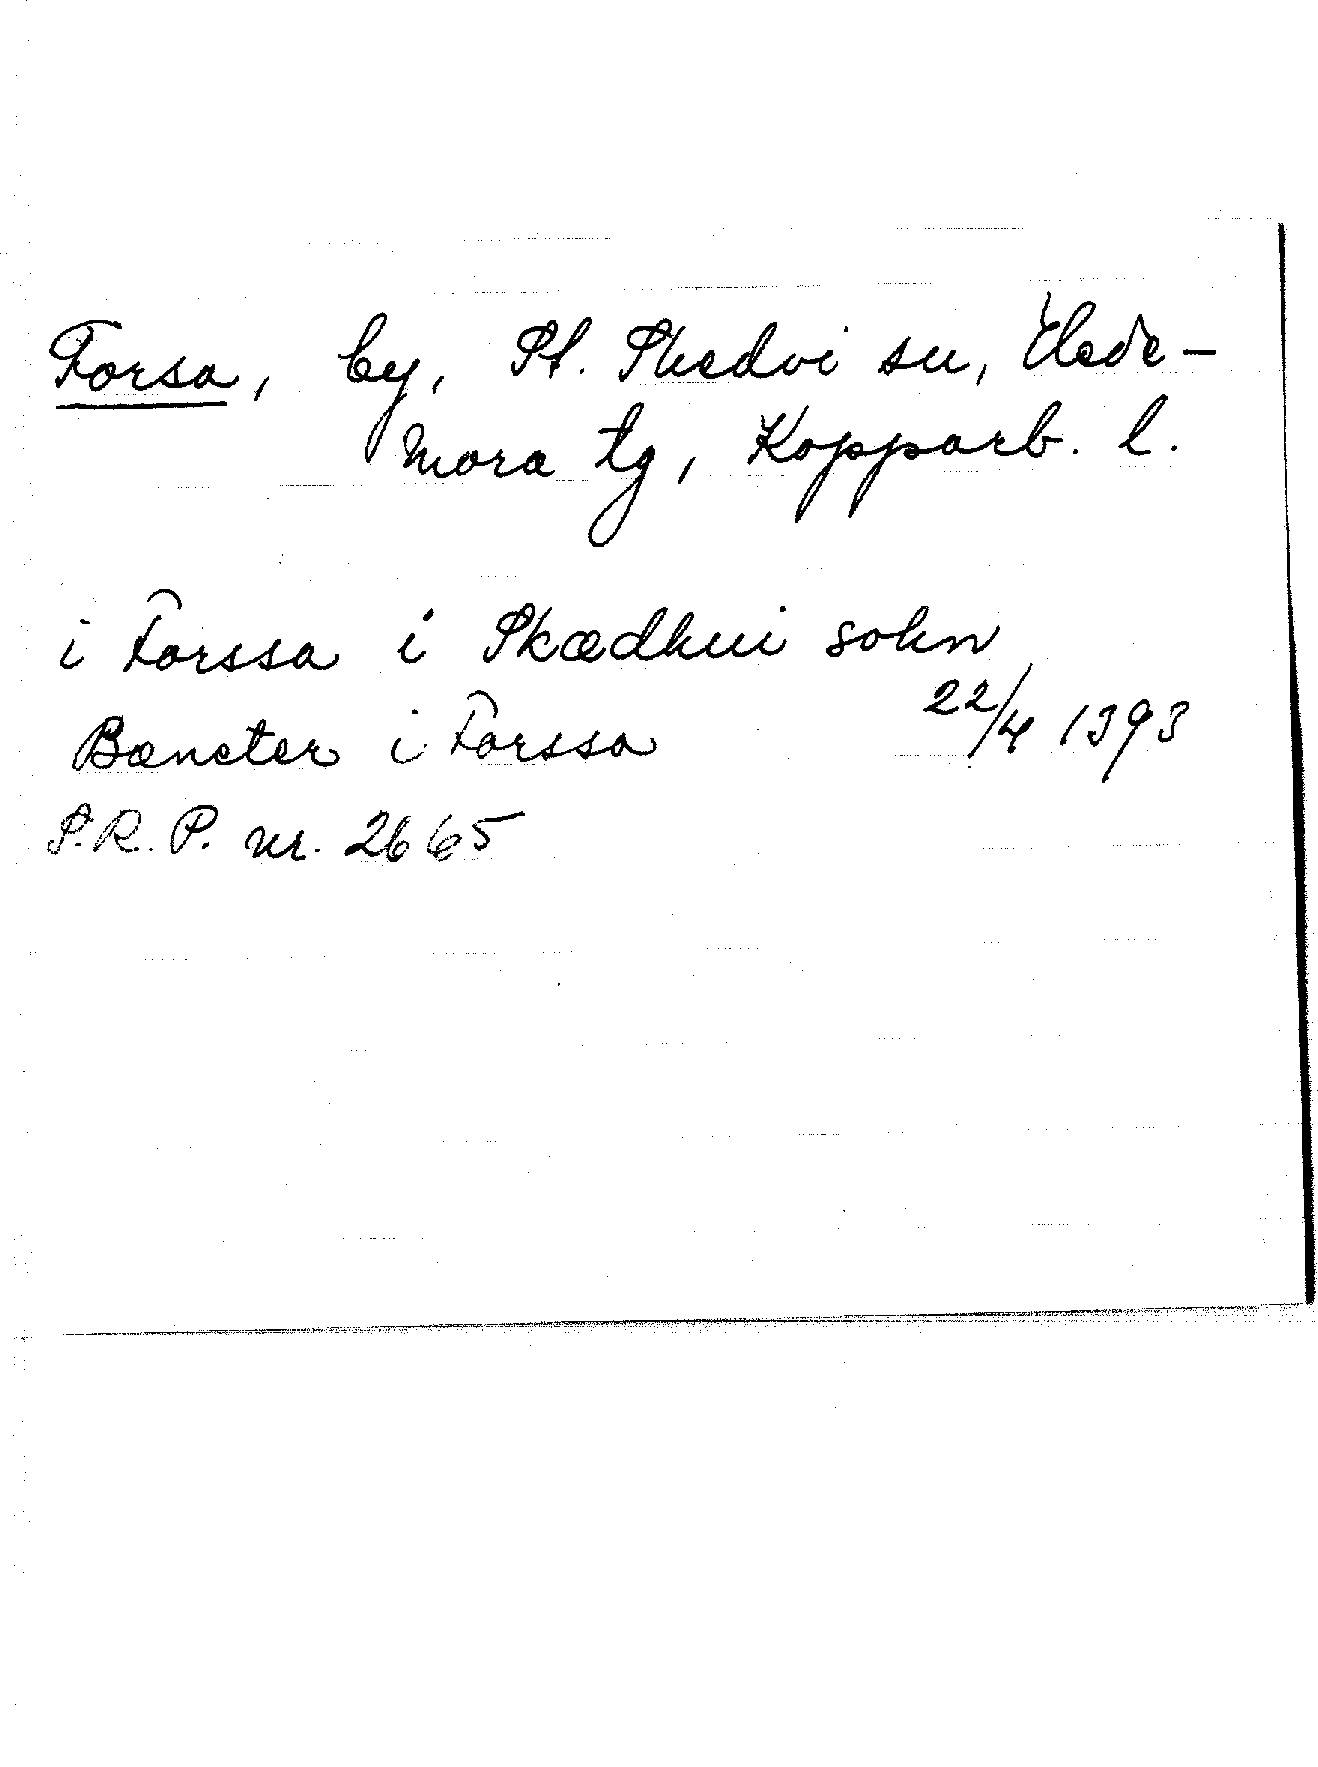 Forsa, by, St. Skedvi sn, Hede-
mora tg, Kopparb. l.
i Forssa i Skædhui sokn
Bæncter i Forssa 22/4 1393
S.R.P. nr. 2665